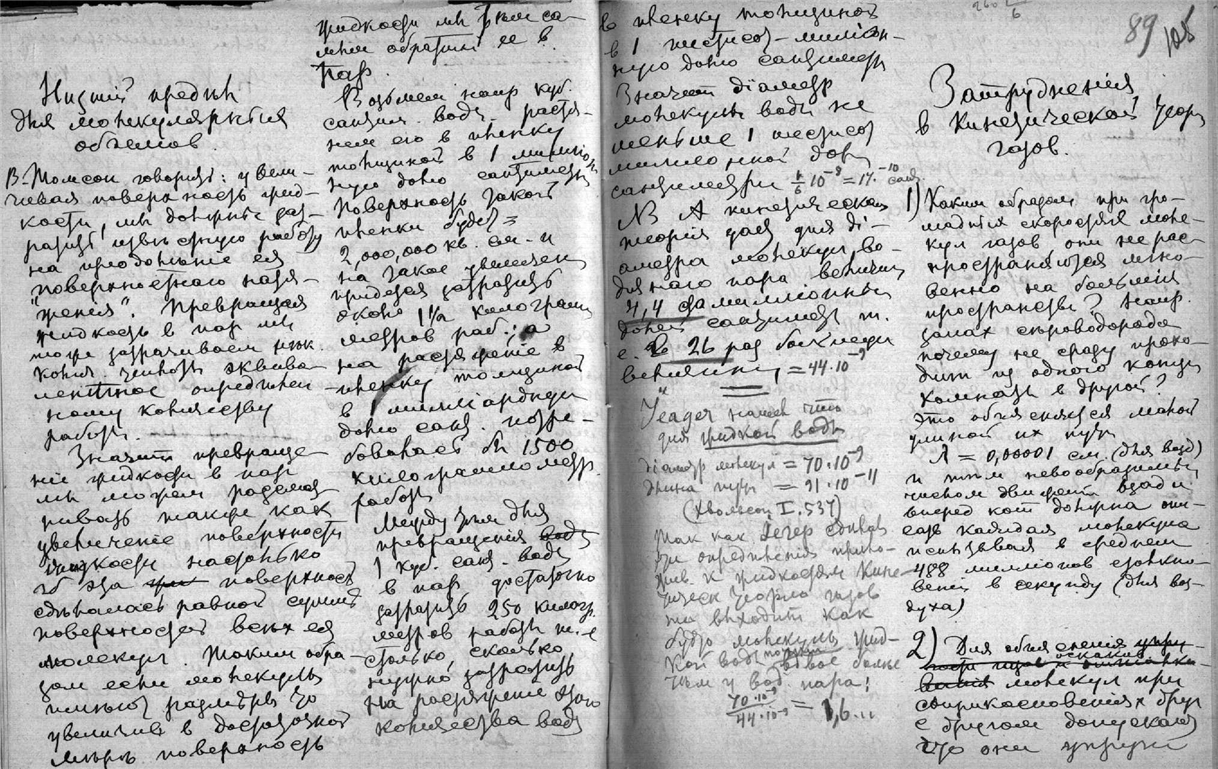 Низшій предѣл
для молекулярных
объемов.
В. Томсон говорит: увели-
чивая поверхность жид-
кости, мы должны зат-
ратить извѣстную работу
на преодоленіе ея
"поверхностнаго натя-
женія". Превращая
жидкость в пар мы
тоже затрачиваем нѣк.
колич. теплоты эквива-
лентное опредѣлен-
ному количеству
работы.
Значит превраще-
ніе жидкости в пар
мы можем разсмат-
ривать также как
увеличеніе поверхности
жидкости настолько
чтобы эта поверхность
сдѣлалась равной суммѣ
поверхностей всѣх ея
молекул. Таким обра-
зом если молекулы
имѣют размѣры то
увеличив в достаточной
мѣрѣ поверхность
жидкости мы тѣм са-
мым обратим ее в
пар.
Возьмем напр куб.
сантим. воды, растя-
нем его в пленку
толщиной в 1 миллион-
ную долю сантиметра
Поверхность такой
пленки будет =
2,000,000 кв. см. и
на такое увеличен
придется затратить
около 1 1/2 килограмм
метров раб.; а
на растяженіе в
пленку толщиной
в миллиардную
долю сант. потре-
бовалась бы 1500
килограммометр.
работы
Между тѣм для
превращенія
1 куб. сант. воды
в пар достаточно
затратить 250 килогр.
метров работы т. е
столько, сколько
нужно затратить
на растяженіе этого
количества воды
в пленку толщиной
в 1 шестисот-миллион-
ную долю сантиметра
Значит діаметр
молекулы воды не
меньше 1 шестисот
миллионной доли
сантиметра 1/6 10⁻⁸ = 17·10⁻¹⁰ сант.
NB А кинетическая
теорія дает для ді-
аметра молекул во-
дянаго пара величину
4,4 стамиллионных
долей сантиметр т.
е. в 26 раз большую
величину = 44·10⁻⁹
Jeager нашел что
для жидкой воды
діаметр молекул = 70·10⁻⁹
длина пути = 91·10⁻¹¹
(Хвольсон I. 537)
так как Jeger
опредѣленія прило-
жив к жидкостям кине-
тическ теорію газов
то выходит как
будто молекулы жид-
кой воды почти вдвое болѣе
чѣм у вод. пара!
70·10⁻⁹ / 44·10⁻⁹ = 1,6..
89
Затрудненія
в Кинетической теоріи
газов.
1) Каким образом при гро-
мадных скоростях моле-
кул газов они не рас-
пространяются мгно-
венно на большія
пространства? напр.
запах сѣроводорода
почему не сразу прохо-
дит из одного конца
комнаты в другой?
Это объясняется малой
длиной их пути
λ = 0,00001 см. (для возд)
и тѣм невообразимым
числом движеній взад и
вперед кот должна опи-
сать каждая молекула
испытывая в среднем
488 миллионов столкно-
веній в секунду (для воз-
духа)
2) Для объясненія
молекул при
соприкосновеніях друг
с другом допускают
что они упруги